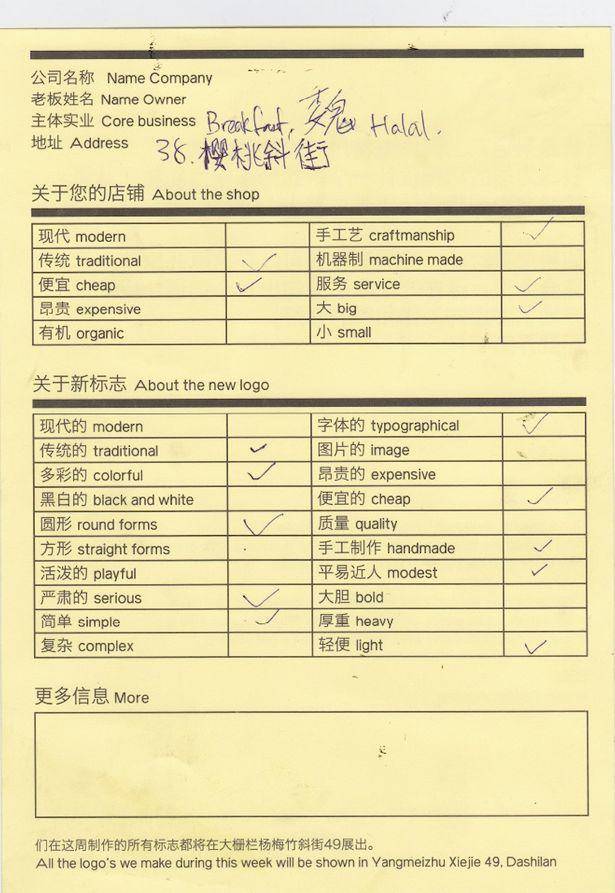 公司名称 Name Company
老板姓名 Name Owner 魏
主体实业 Core business Breakfast, Halal.
地址 Address 38. 樱桃斜街
关于您的店铺 About the shop
现代 modern 手工艺 craftmanship ✓
传统 traditional ✓ 机器制 machine made
便宜 cheap ✓ 服务 service ✓
昂贵 expensive 大 big ✓
有机 organic 小 small
关于新标志 About the new logo
现代的 modern 字体的 typographical ✓
传统的 traditional ✓ 图片的 image
多彩的 colorful ✓ 昂贵的 expensive
黑白的 black and white 便宜的 cheap ✓
圆形 round forms ✓ 质量 quality
方形 straight forms 手工制作 handmade ✓
活泼的 playful 平易近人 modest ✓
严肃的 serious ✓ 大胆 bold
简单 simple ✓ 厚重 heavy
复杂 complex 轻便 light ✓
更多信息 More
们在这周制作的所有标志都将在大栅栏杨梅竹斜街49展出。
All the logo's we make during this week will be shown in Yangmeizhu Xiejie 49, Dashilan